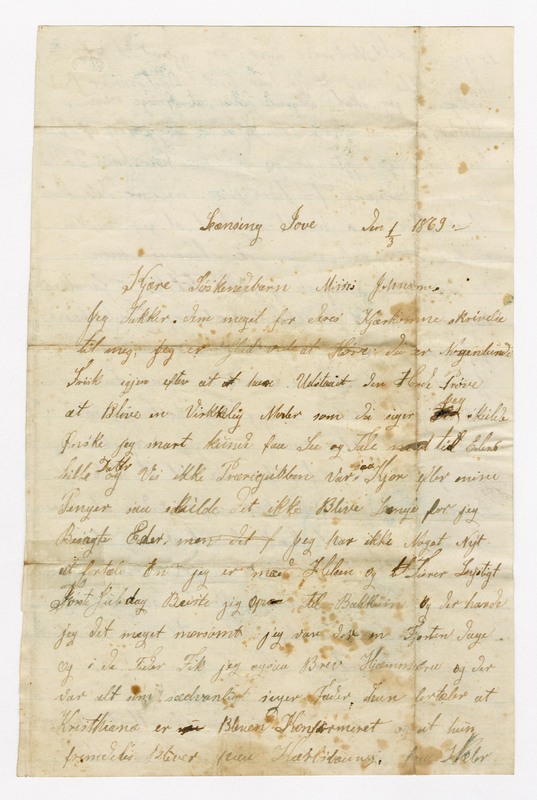 Lansing Jove Den 1/3 1869.
Kjære Södskenebarn Misis Johnson
Jeg Takker dem meget for deres Kjærkomne skrivelse
til mig, jeg er glad ved at Höre du er Nogenlunde
Frisk igjen efter at at have Udstaaet den Hode Pröve
at Blive en Virkelig Moder som du siger jeg skulde
Önske jeg snart kunde faa See og Tale med Eders
lille Datter og Vis ikke var saa eller mine
Penger saa skulde det ikke Blive Længe för jeg
Besögte Eder, men det f Jeg har ikke Noget Nyt
at fortæle En jeg er med Helsen og Lever Lystigt
Reiste jeg op til og der havde
jeg det meget morsomt jeg var der en Fjorten Dage
og i de Tider Fik jeg ogsaa Brev Hjemmefra og der
var alt som sædvanlig siger Fader, hun fortæler at
Kristhiana er Bleven Konfirmeret og at hun
fremdeles Bliver paa